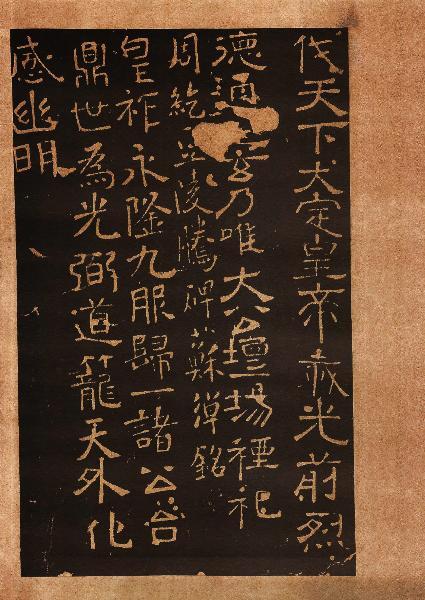 伐天下大定皇帝赤光前烈
德通玄乃唯大公壇場禋祀
周紇豆陵騰碑蘇銘
皇祚永隆九服歸一諸公台
鼎世為光弼道籠天外化
感幽明